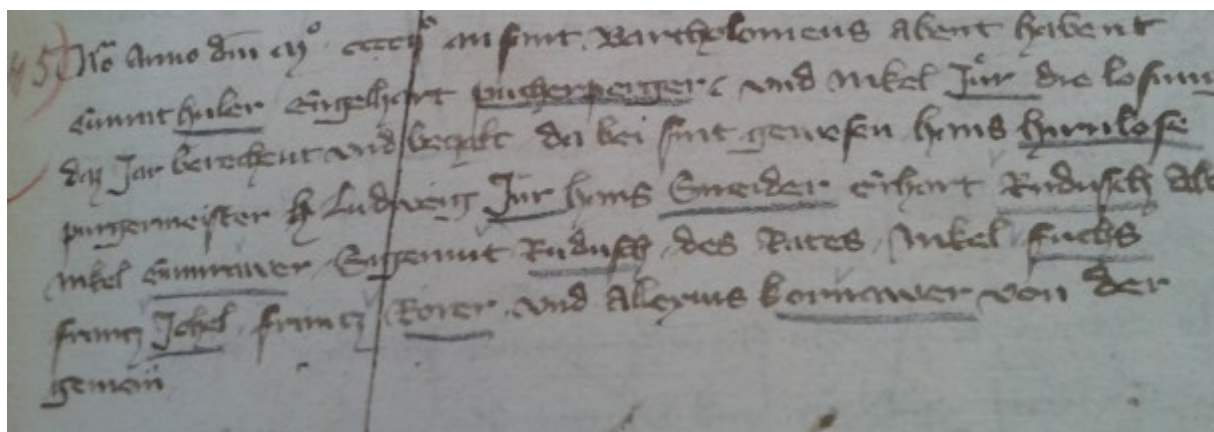 45) Anno dm mo cccco an sant Bartholomeus abent habent
huler Engelhart pucherperger und Nikel Jur die losung
daz Jar berechent und bezalt da bei sint gewesen hans hirnlose
purgermeister h Ludweig Jur hans Sneider Erhart Rudusch
Nikel Sigmunt Rudusch des Rates Nikel fuchs
francz Ichel francz Rorer und Allexius kornawer von der
gemein